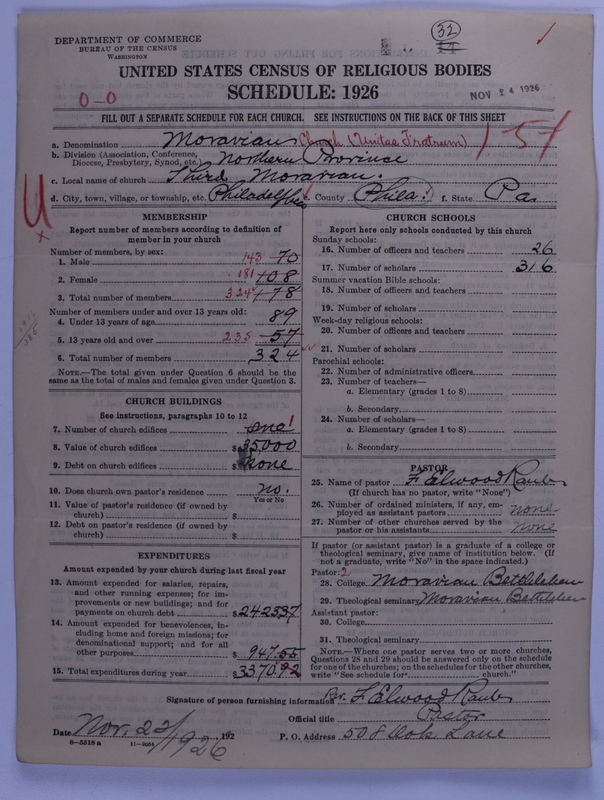 DEPARTMENT OF COMMERCE
BUREAU OF THE CENSUS
WASHINGTON
32
UNITED STATES CENSUS OF RELIGIOUS BODIES
SCHEDULE: 1926
NOV 24 1926
0-0
FILL OUT A SEPARATE SCHEDULE FOR EACH CHURCH. SEE INSTRUCTIONS ON THE BACK OF THIS SHEET
a. Denomination Moravian Church (Unitas Fratrum) 154
b. Division (Association, Conference,
Diocese, Presbytery, Synod, etc.) Northern Province
c. Local name of church Third Moravian.
d. City, town, village, or township, etc. Philadelphia e. County Phila. f. State Pa.
MEMBERSHIP
Report number of members according to definition of
member in your church
Number of members, by sex:
1. Male 143 70
2. Female 181 108
3. Total number of members 324 178
Number of members under and over 13 years old:
4. Under 13 years of age 89
5. 13 years old and over 235 57
6. Total number of members 324
NOTE.—The total given under Question 6 should be the
same as the total of males and females given under Question 3.
CHURCH BUILDINGS
See instructions, paragraphs 10 to 12
7. Number of church edifices one 1
8. Value of church edifices $35,000
9. Debt on church edifices $none
10. Does church own pastor's residence no.
Yes or No
11. Value of pastor's residence (if owned by
church) $
12. Debt on pastor's residence (if owned by
church) $
EXPENDITURES
Amount expended by your church during last fiscal year
13. Amount expended for salaries, repairs,
and other running expenses; for im-
provements or new buildings; and for
payments on church debt $2425.37
14. Amount expended for benevolences, in-
cluding home and foreign missions; for
denominational support; and for all
other purposes $947.55
15. Total expenditures during year $3370.92
CHURCH SCHOOLS
Report here only schools conducted by this church
Sunday schools:
16. Number of officers and teachers 26
17. Number of scholars 316
Summer vacation Bible schools:
18. Number of officers and teachers
19. Number of scholars
Week-day religious schools:
20. Number of officers and teachers
21. Number of scholars
Parochial schools:
22. Number of administrative officers
23. Number of teachers—
a. Elementary (grades 1 to 8)
b. Secondary
24. Number of scholars—
a. Elementary (grades 1 to 8)
b. Secondary
PASTOR
25. Name of pastor F. Elwood Raub
(If church has no pastor, write "None")
26. Number of ordained ministers, if any, em-
ployed as assistant pastors none
27. Number of other churches served by the
pastor or his assistants none
If pastor (or assistant pastor) is a graduate of a college or
theological seminary, give name of institution below. (If
not a graduate, write "No" in the space indicated.)
Pastor: 2
28. College Moravian Bethlehem
29. Theological seminary Moravian Bethlehem
Assistant pastor:
30. College
31. Theological seminary
NOTE.—Where one pastor serves two or more churches,
Questions 28 and 29 should be answered only on the schedule
for one of the churches; on the schedules for the other churches,
write "See schedule for church."
Signature of person furnishing information Br. F. Elwood Raub
Official title Pastor
Date Nov. 22/1926 192
P. O. Address 508 Oak Lane
8—5518 a 11—9054